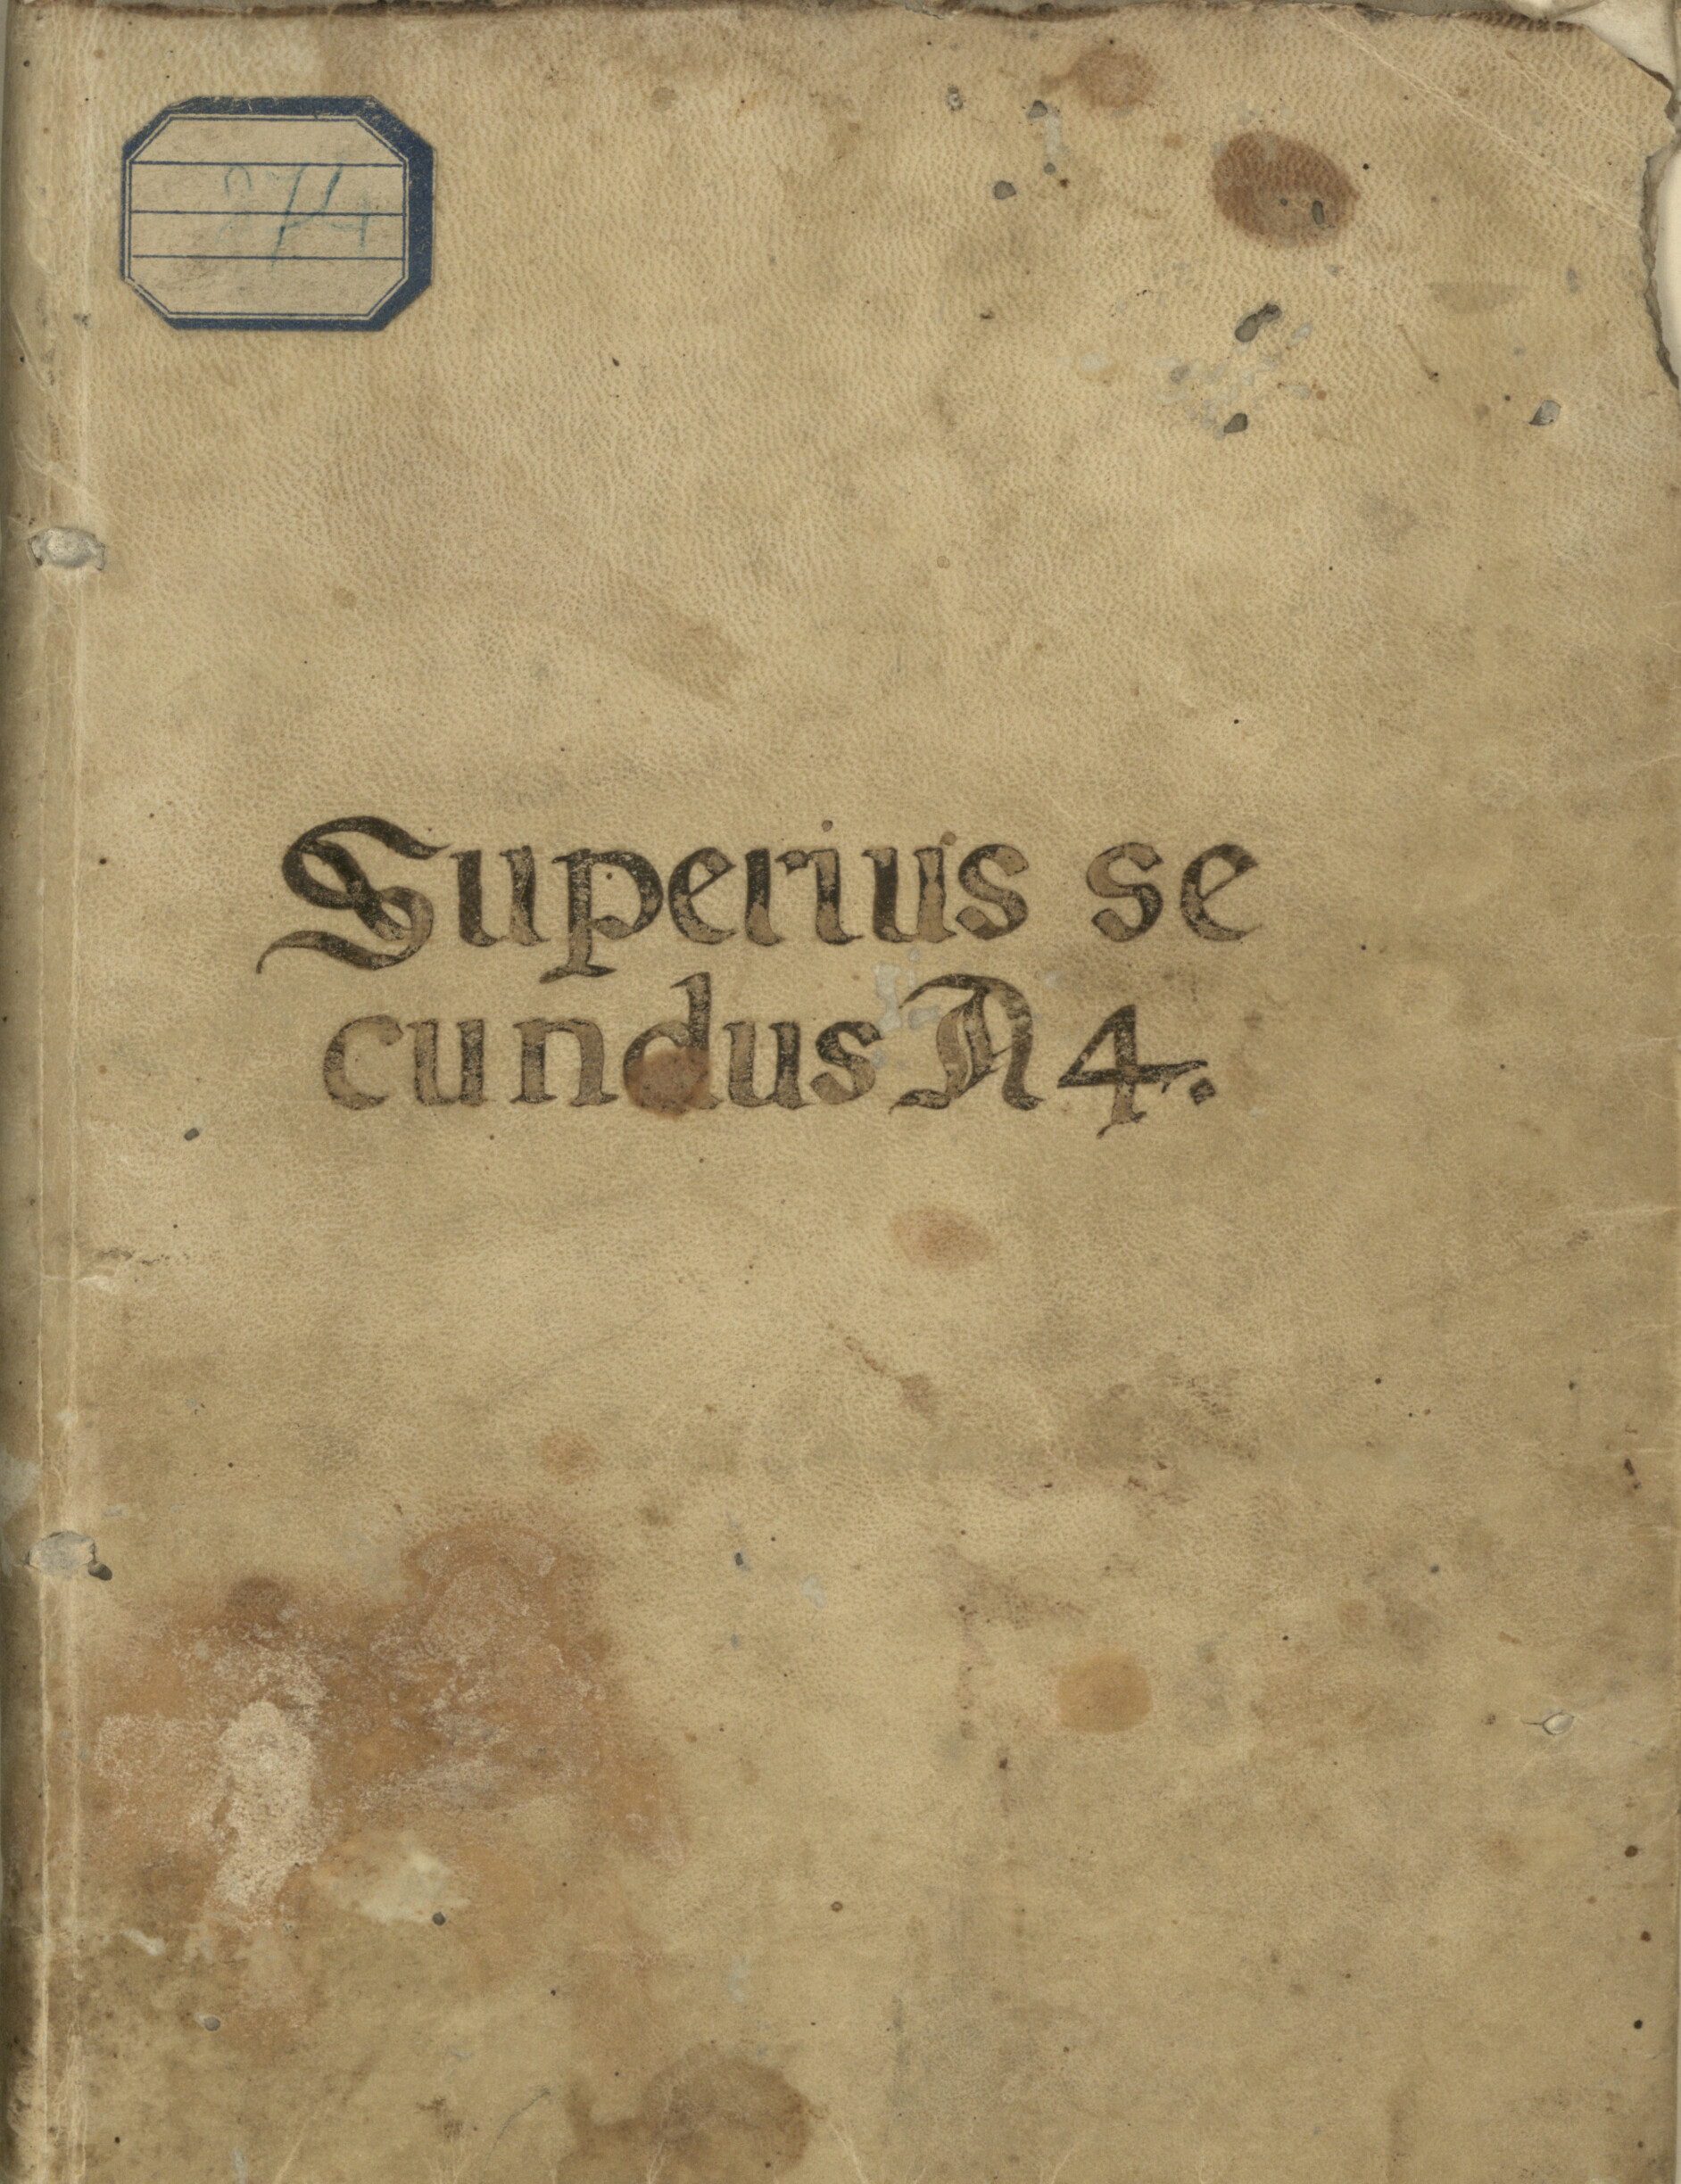 274
Superius se
cundus N 4.